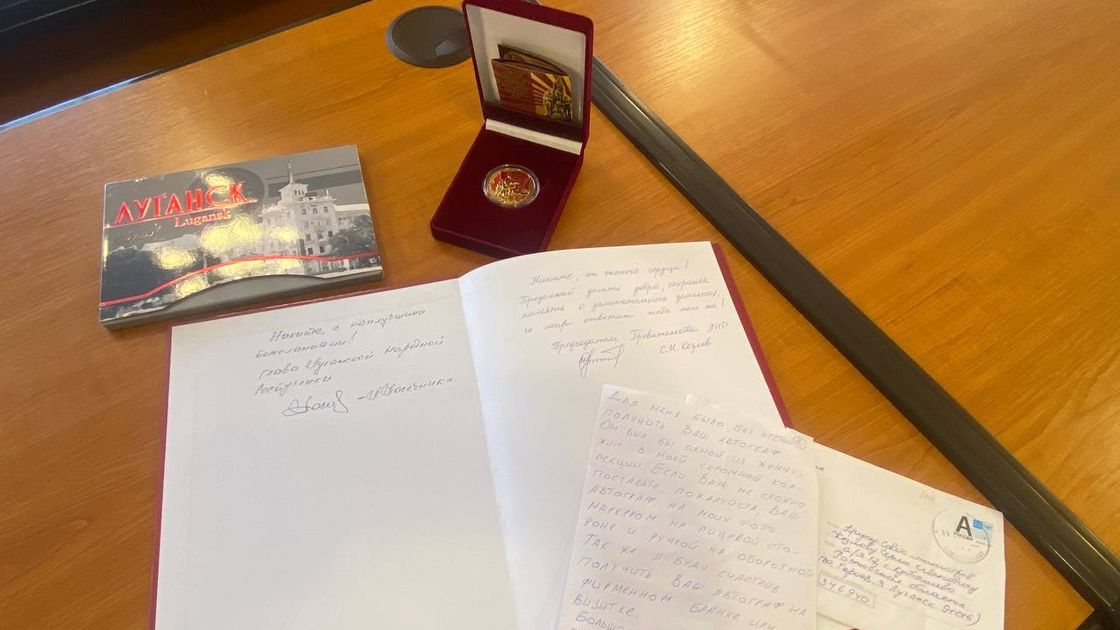 ЛУГАНСК
Lugansk
Никите с наилучшими
пожеланиями!
Глава Луганской Народной
Республики
Пасечник
Никите, от чистого сердца!
Продолжай делать добро, сохраняя
память о замечательных земляках,
и мир ответит тебе тем же!
Председатель Правительства ЛНР
С.И. Козлов
Для меня было бы честью
2
получить Ваш автограф
Он был бы одной из жемчу-
жин в моей скромной кол-
лекции. Если Вам не сложно
поставьте, пожалуйста, Ваш
автограф на моих фото
маркером на лицевой сто-
роне и ручкой на оборотной
Так же я буду счастлив
получить Ваш автограф на
фирменном бланке или
визитке.
А
Россия
Козлову Сергею Ивановичу
Ростовская область
Луганск
346940